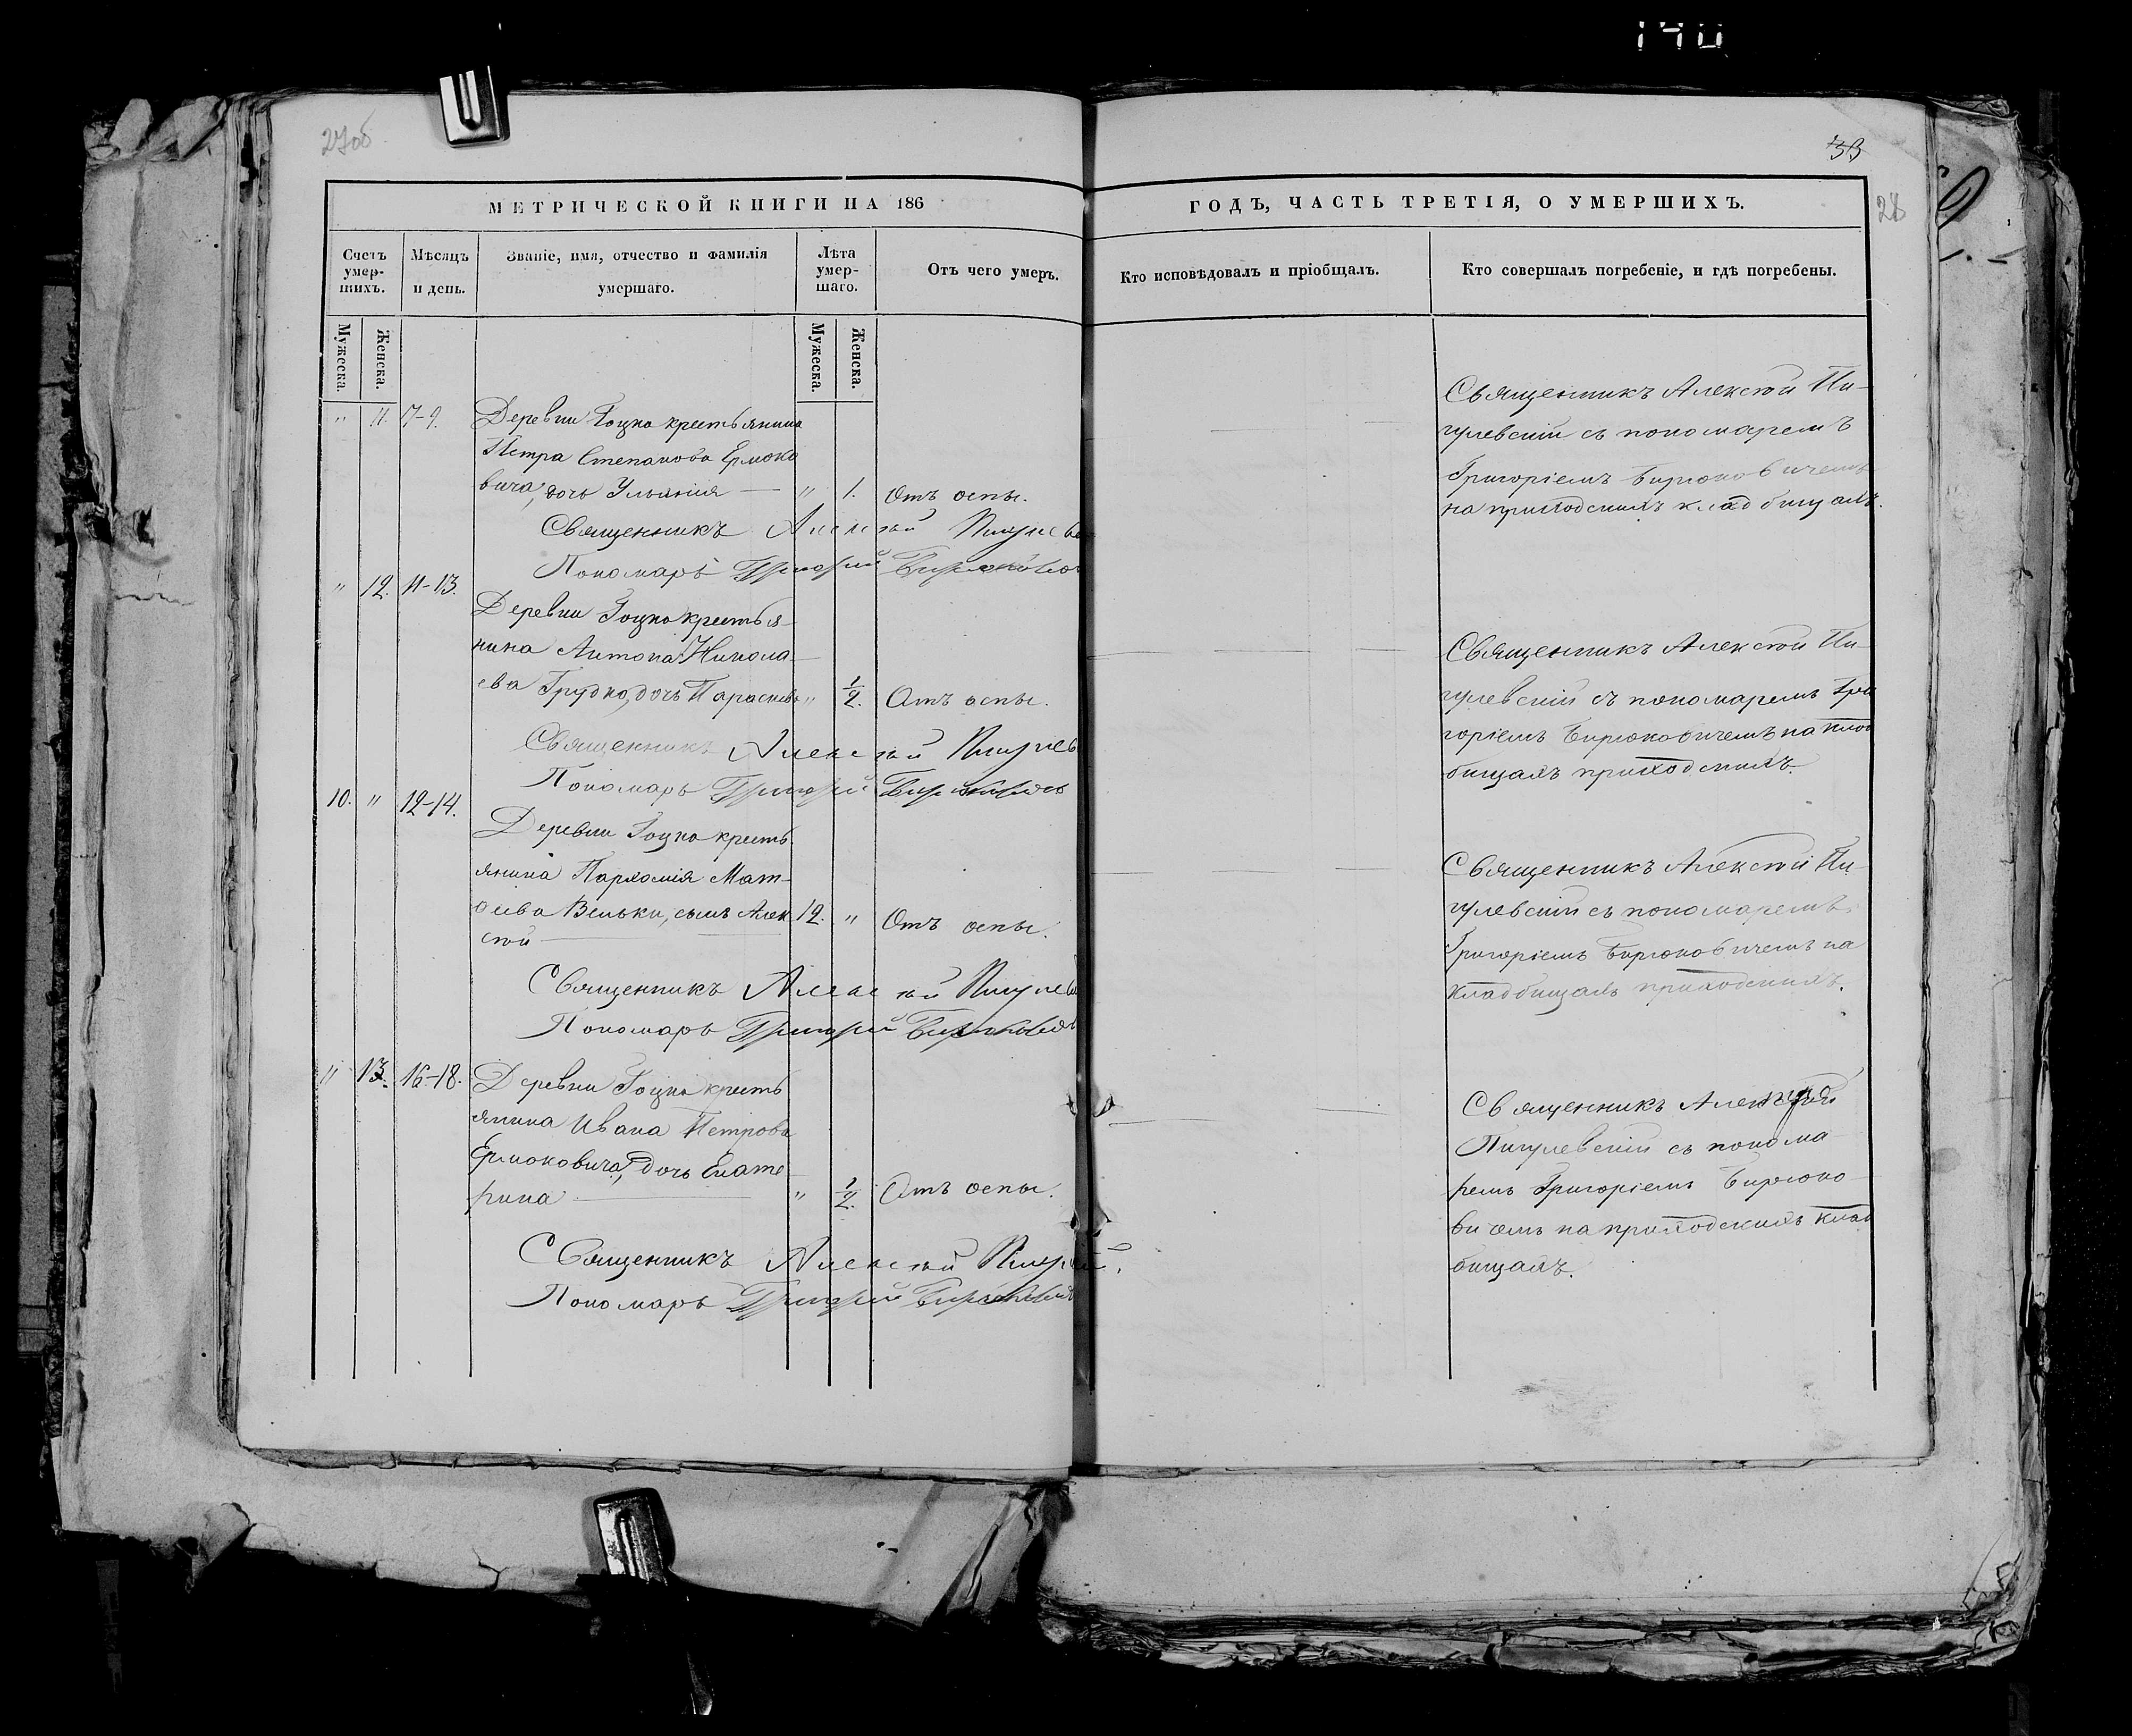 140
27об
33
28
МЕТРИЧЕСКОЙ КНИГИ НА 186
ГОДЪ, ЧАСТЬ ТРЕТІЯ, О УМЕРШИХЪ.
Счетъ умер-шихъ.
Мѣсяцъ и день.
Званіе, имя, отчество и фамилія умершаго.
Лѣта умер-шаго.
Отъ чего умеръ.
Кто исповѣдовалъ и пріобщалъ.
Кто совершалъ погребеніе, и гдѣ погребены.
Мужеска.
Женска.
Мужеска.
Женска.
" 11. 7-9. Деревни Гоцка крестьянина
Петра Степанова Ермоко
вича, дочь Ульянія — " 1. Отъ оспы.
Священникъ Алексѣй
Пономарь Григорій Бирюкович
Священникъ Алексѣй Пи-
гулевскій съ пономаремъ
Григоріемъ Бирюковичемъ
на приходскихъ кладбищахъ.
" 12. 11-13. Деревни Гоцка крестья-
нина Антона Никола-
ева Грудко, дочь Параскева " 1/2. Отъ оспы.
Священникъ Алексѣй Пигулев
Пономарь Григорій Бирюковичъ
Священникъ Алексѣй Пи-
гулевскій съ пономаремъ Гри
горіемъ Бирюковичемъ на клад
бищахъ приходскихъ.
10. " 12-14. Деревни Гоцка кресть
янина Пархомія Мат-
ѳеева Веньки, сынъ Алек 12. " Отъ оспы.
сѣй
Священникъ Алексѣй Пигулев
Пономарь Григорій Бирюковичъ
Священникъ Алексѣй Пи-
гулевскій съ пономаремъ
Григоріемъ Бирюковичемъ на
кладбищахъ приходскихъ.
" 13. 16-18. Деревни Гоцка кресть
янина Ивана Петрова
Ермоковича, дочь Екате-
рина — " 1/2. Отъ оспы.
Священникъ Алексѣй
Пономарь Григорій Бирюковичъ
Священникъ Алексѣй
Пигулевскій съ понома-
ремъ Григоріемъ Бирюко-
вичемъ на приходскихъ клад
бищахъ.